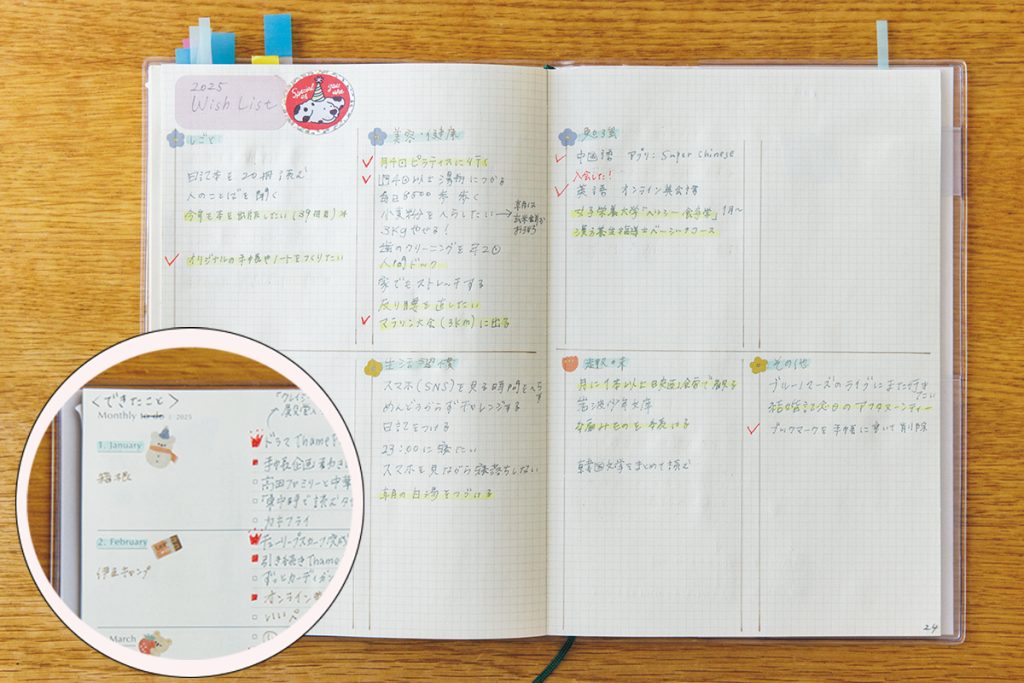 2025
Wish List
Special
しごと
日記本を20冊読む
人のことばを聞く
今年も本を出版したい(39冊目)
オリジナルの手帳やノートをつくりたい
美容・健康
月4回ピラティスに行く
週4回以上湯船につかる
毎日8500歩歩く
小麦粉をへらしたい→
3kgやせる!
歯のクリーニングを年2回
人間ドック
家でもストレッチする
反り腰を直したい
マラソン大会(3km)に出る
勉強
中国語 アプリ:Super Chinese
入会した!
英語 オンライン英会話
女子栄養大学「ヘルシー食学」1月〜
漢方養生指導士ベーシックコース
生活習慣
スマホ(SNS)を見る時間をへらす
めんどうがらずアイロンする
日記をつける
23:00に寝たい
スマホを見ながら寝落ちしない
朝の白湯をつづける
趣味
月に1本以上映画館で観る
岩波少年文庫
編みものを続ける
韓国文学をまとめて読む
その他
ブルーノマーズのライブにまた行きたい
結婚記念日のアフタヌーンティー
ブックマークを手帳に書いて削除
24
<できたこと>
Monthly to do | 2025
1. January
箱根
ドラマThame
手帳企画
高田
カキフライ
2. February
伊豆キャンプ
チューリップスカーフ完成
引き続きThame
ずっとカーディガン
オンライン
いいペ
March